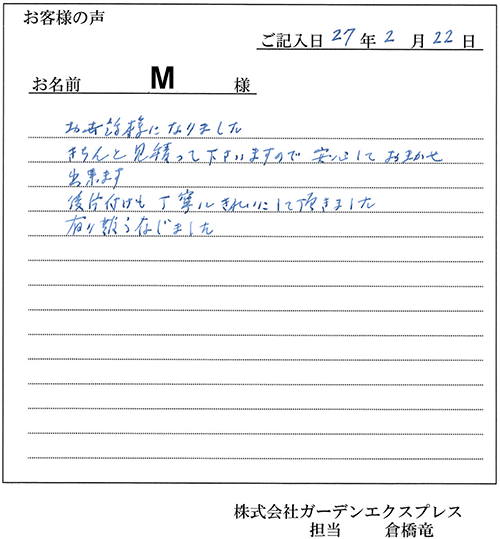 お客様の声
ご記入日 27 年 2 月 22 日
お名前 M 様
お世話様になりました
きちんと見積って下さいますので 安心しておまかせ
出来ます
後片付けも丁寧にきれいにして頂きました
有り難う存じました
株式会社ガーデンエクスプレス
担当 倉橋竜